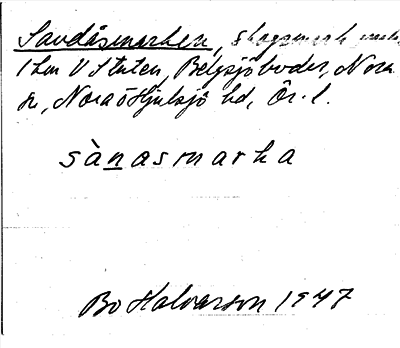 Sandåsmarken, skogsmark
1 km V Stuten, Bälgsjöbodar, Nora
sn, Nora ö Hjulsjö hd, Ör. l.
sànasmarka
Bo Halvarson 1947